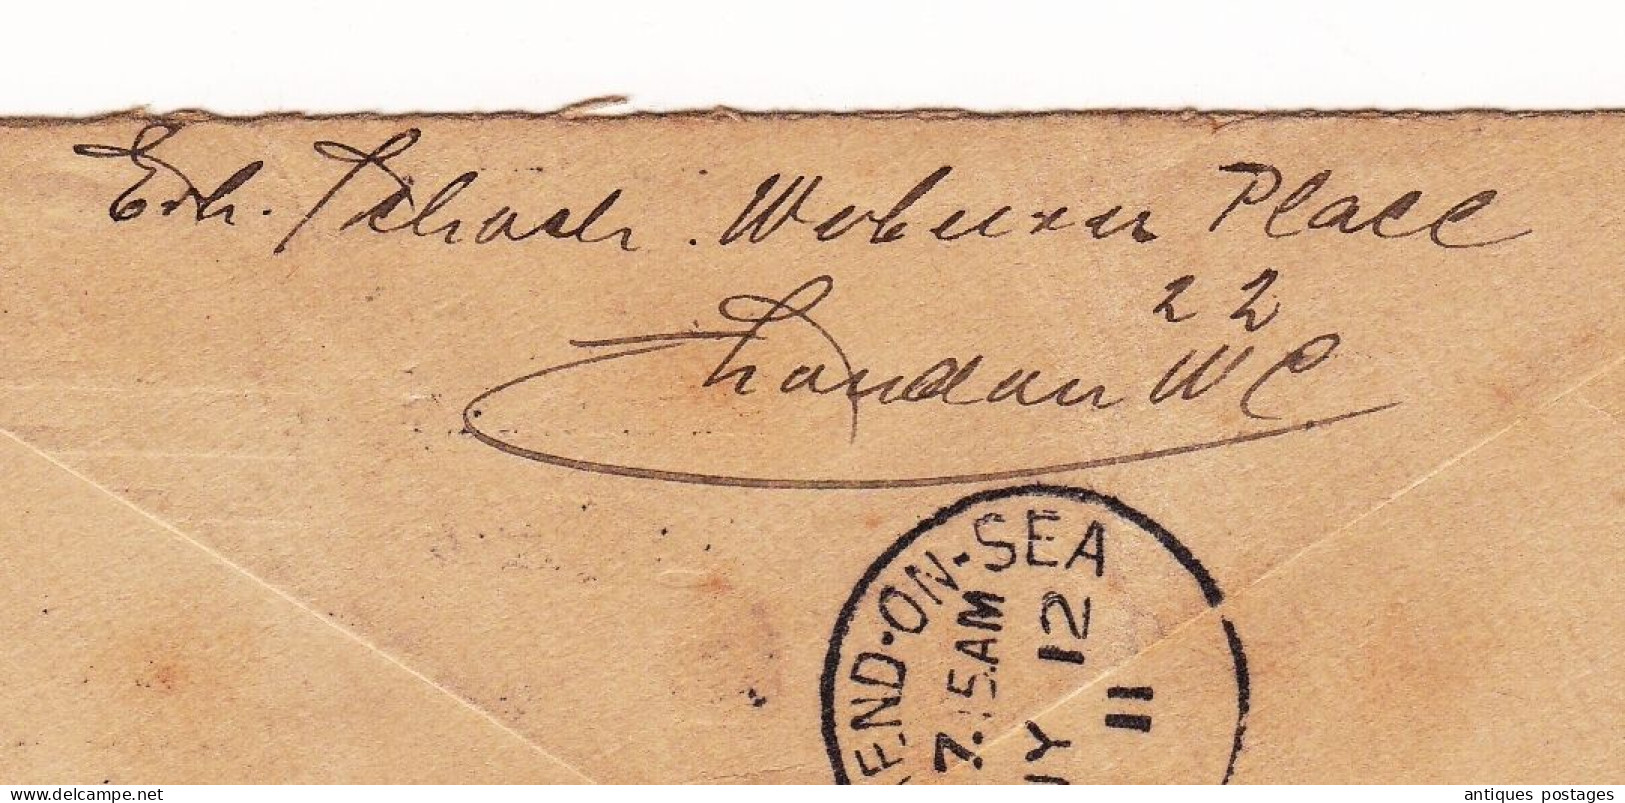 Woburn Place
22
London WC
END·ON-SEA
7.15AM
12
11
www.delcampe.net
antiques postages